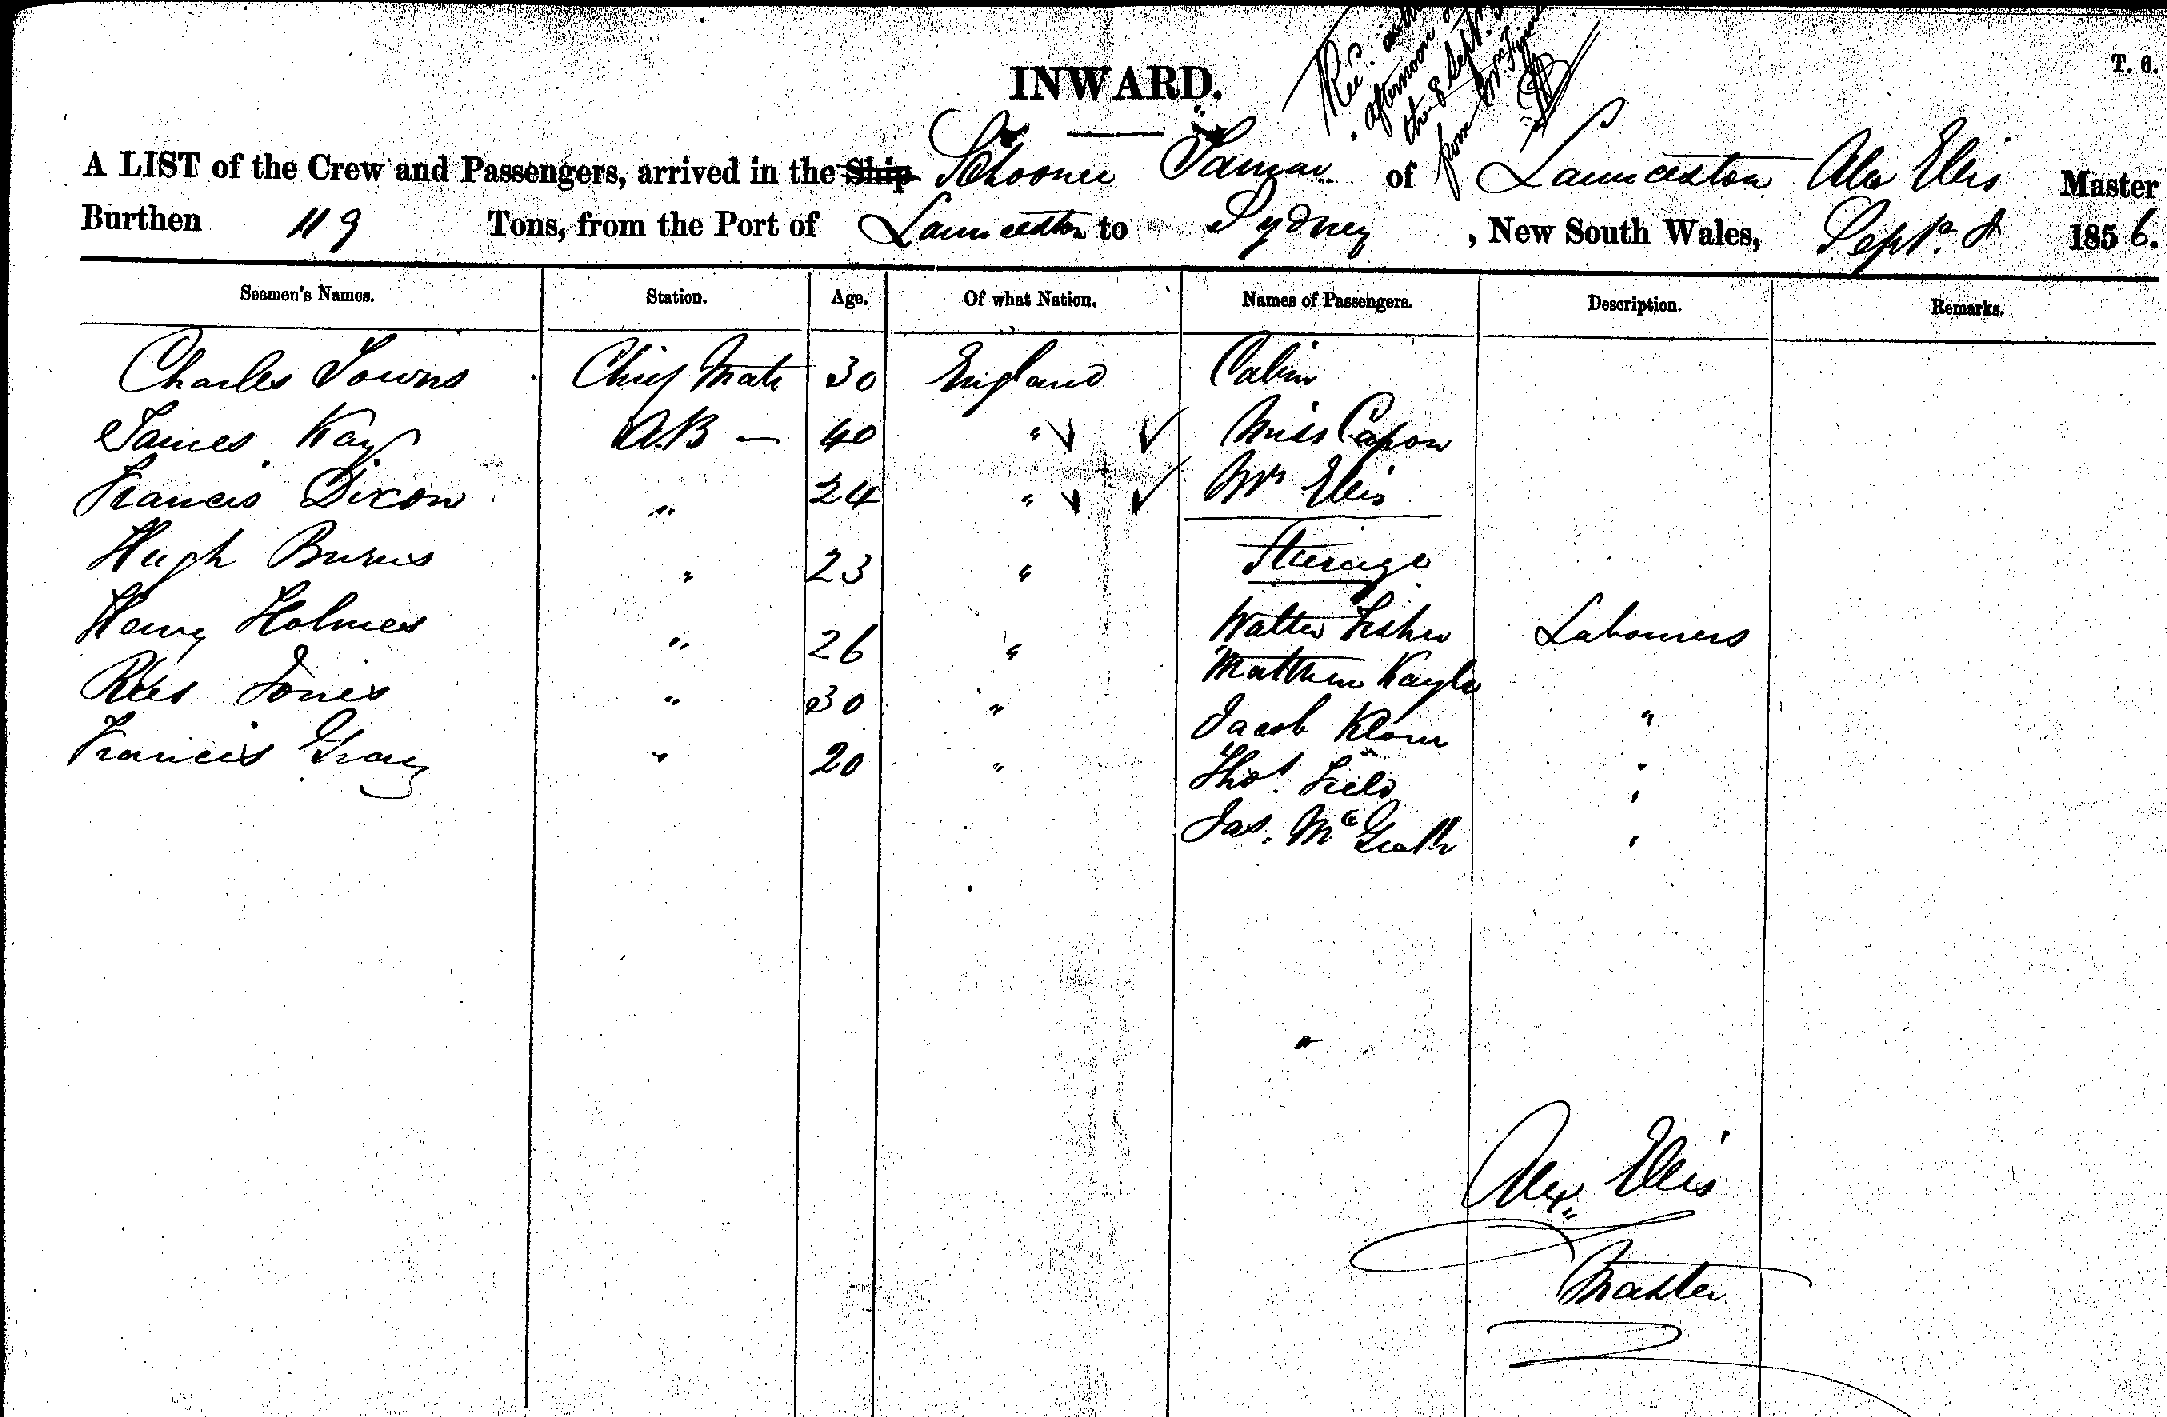 T. 6.
INWARD.
Rec.
afternoon
the 8 Sept.
from Mr
A LIST of the Crew and Passengers, arrived in the Ship Schooner Tamar of Launceston Alex Ellis Master
Burthen 119 Tons, from the Port of Launceston to Sydney, New South Wales, Septr. 8 1856.
Seamen's Names. Station. Age. Of what Nation. Names of Passengers. Description. Remarks.
Charles Towns Chief Mate 30 England Cabin
James Kay AB — 40 " Miss Capon
Francis Dixon " 24 " Mrs Ellis
Hugh Burns " 23 " Steerage
Henry Holmes " 26 " Walter Fisher Labourers
Rees Jones " 30 " Matthew Kayler "
Francis Gray " 20 " Jacob "
Thos. Field "
Jas. McGrath "
"
Alex. Ellis
Master